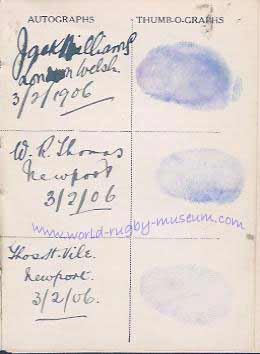 AUTOGRAPHS THUMB-O-GRAPHS
Jack Williams
London Welsh
3/2/1906
W. R. Thomas
Newport
3/2/06
www.world-rugby-museum.com
Thos H. Vile.
Newport.
3/2/06.